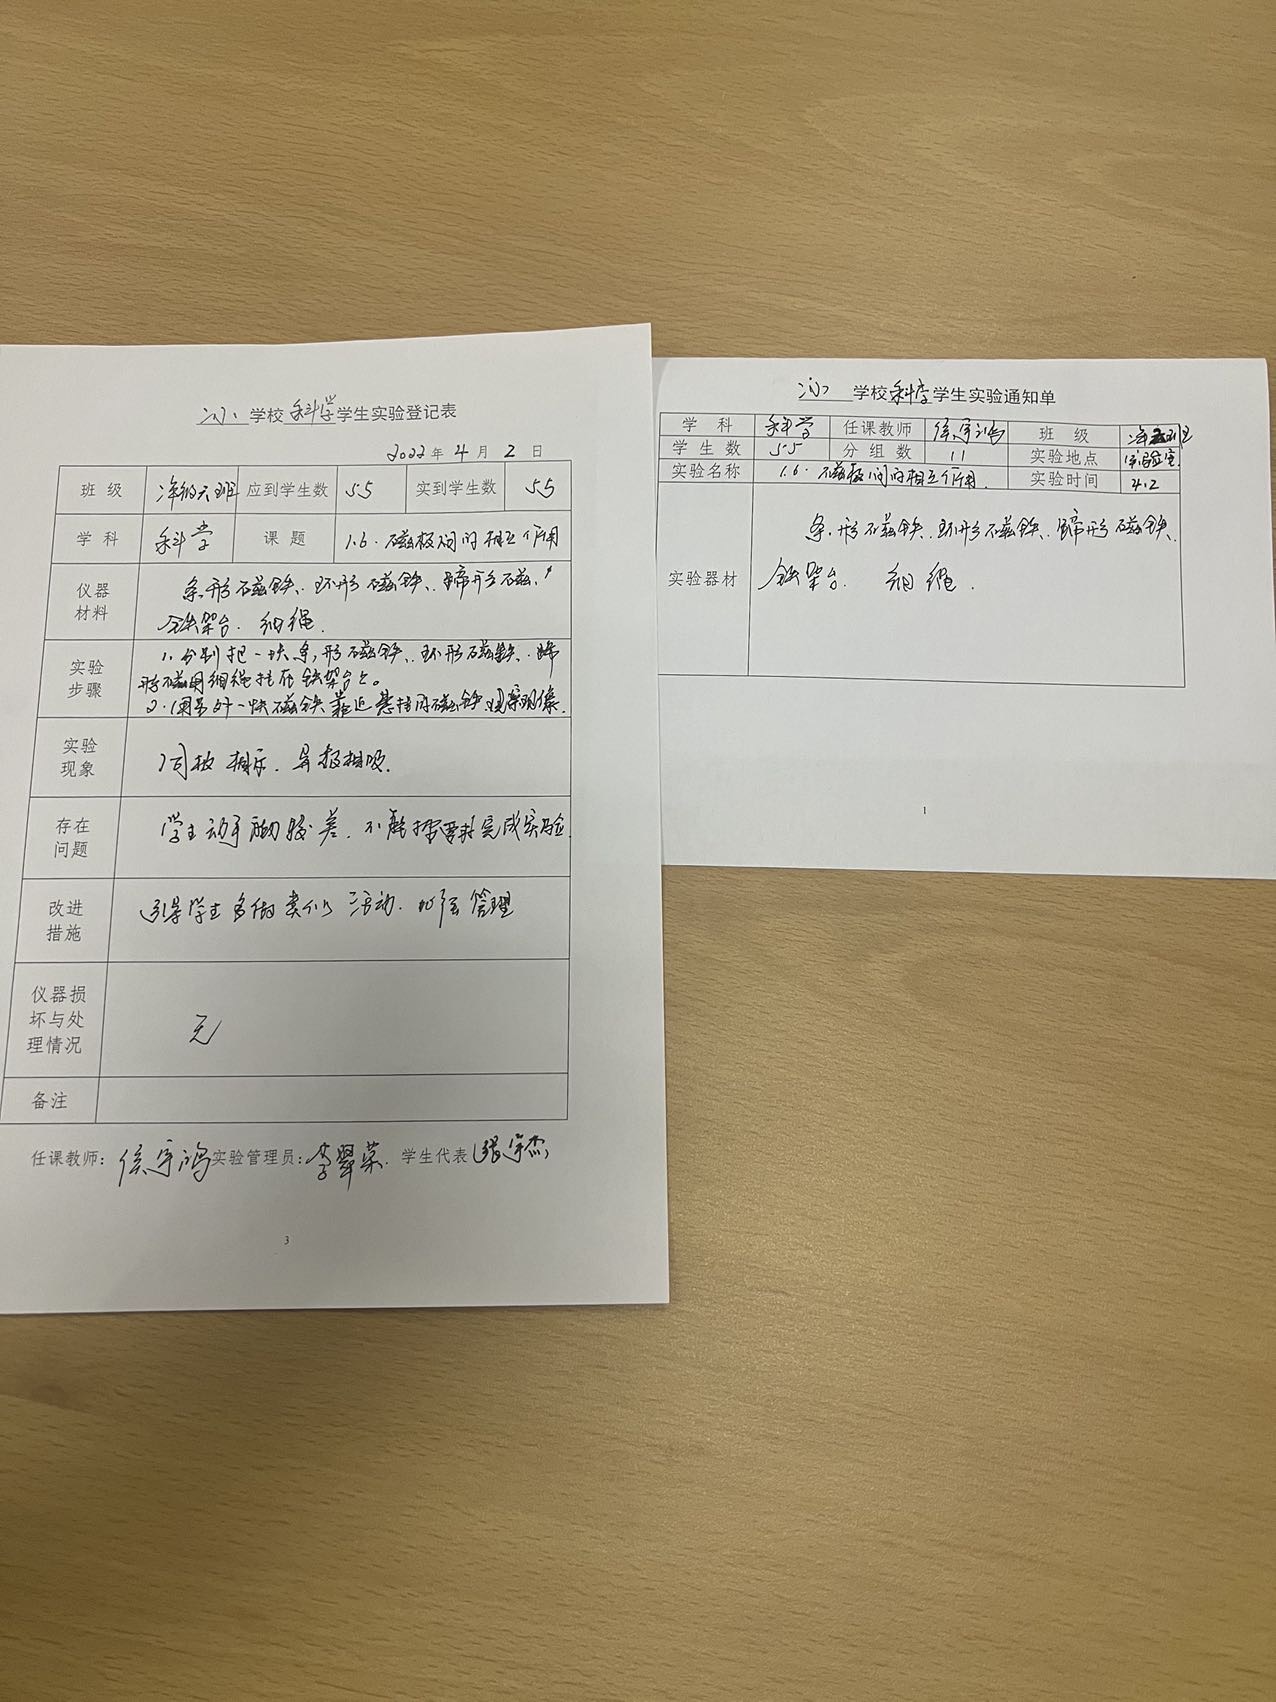 学校科学学生实验登记表
2022年4月2日
班级 应到学生数 55 实到学生数 55
学科 科学 课题 1.6.磁极间的相互作用
仪器材料 条形磁铁、环形磁铁、蹄形磁
铁架台、细绳.
实验步骤 1.分别把一块条形磁铁、环形磁铁、蹄
形磁用细绳挂在铁架台上。
2.用另外一块磁铁靠近悬挂的磁铁,观察现象.
实验现象 同极相斥,异极相吸.
存在问题 学生动手能力较差,不能按要求完成实验.
改进措施 引导学生多做类似活动.加强管理
仪器损坏与处理情况 无
备注
任课教师:侯宇鸿 实验管理员:李翠荣. 学生代表 张宇杰
3
学校科学学生实验通知单
学科 科学 任课教师 侯宇鸿 班级
学生数 55 分组数 11 实验地点 实验室
实验名称 1.6.磁极间的相互作用. 实验时间 4.2
实验器材 条形磁铁、环形磁铁、蹄形磁铁、
铁架台. 细绳.
1